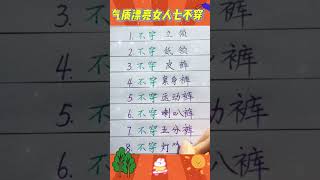 气质漂亮女人七不穿
1. 不穿 立领
2. 不穿 低领
3. 不穿 皮裤
4. 不穿 紧身裤
5. 不穿 运动裤
6. 不穿 喇叭裤
7. 不穿 五分裤
8. 不穿 灯